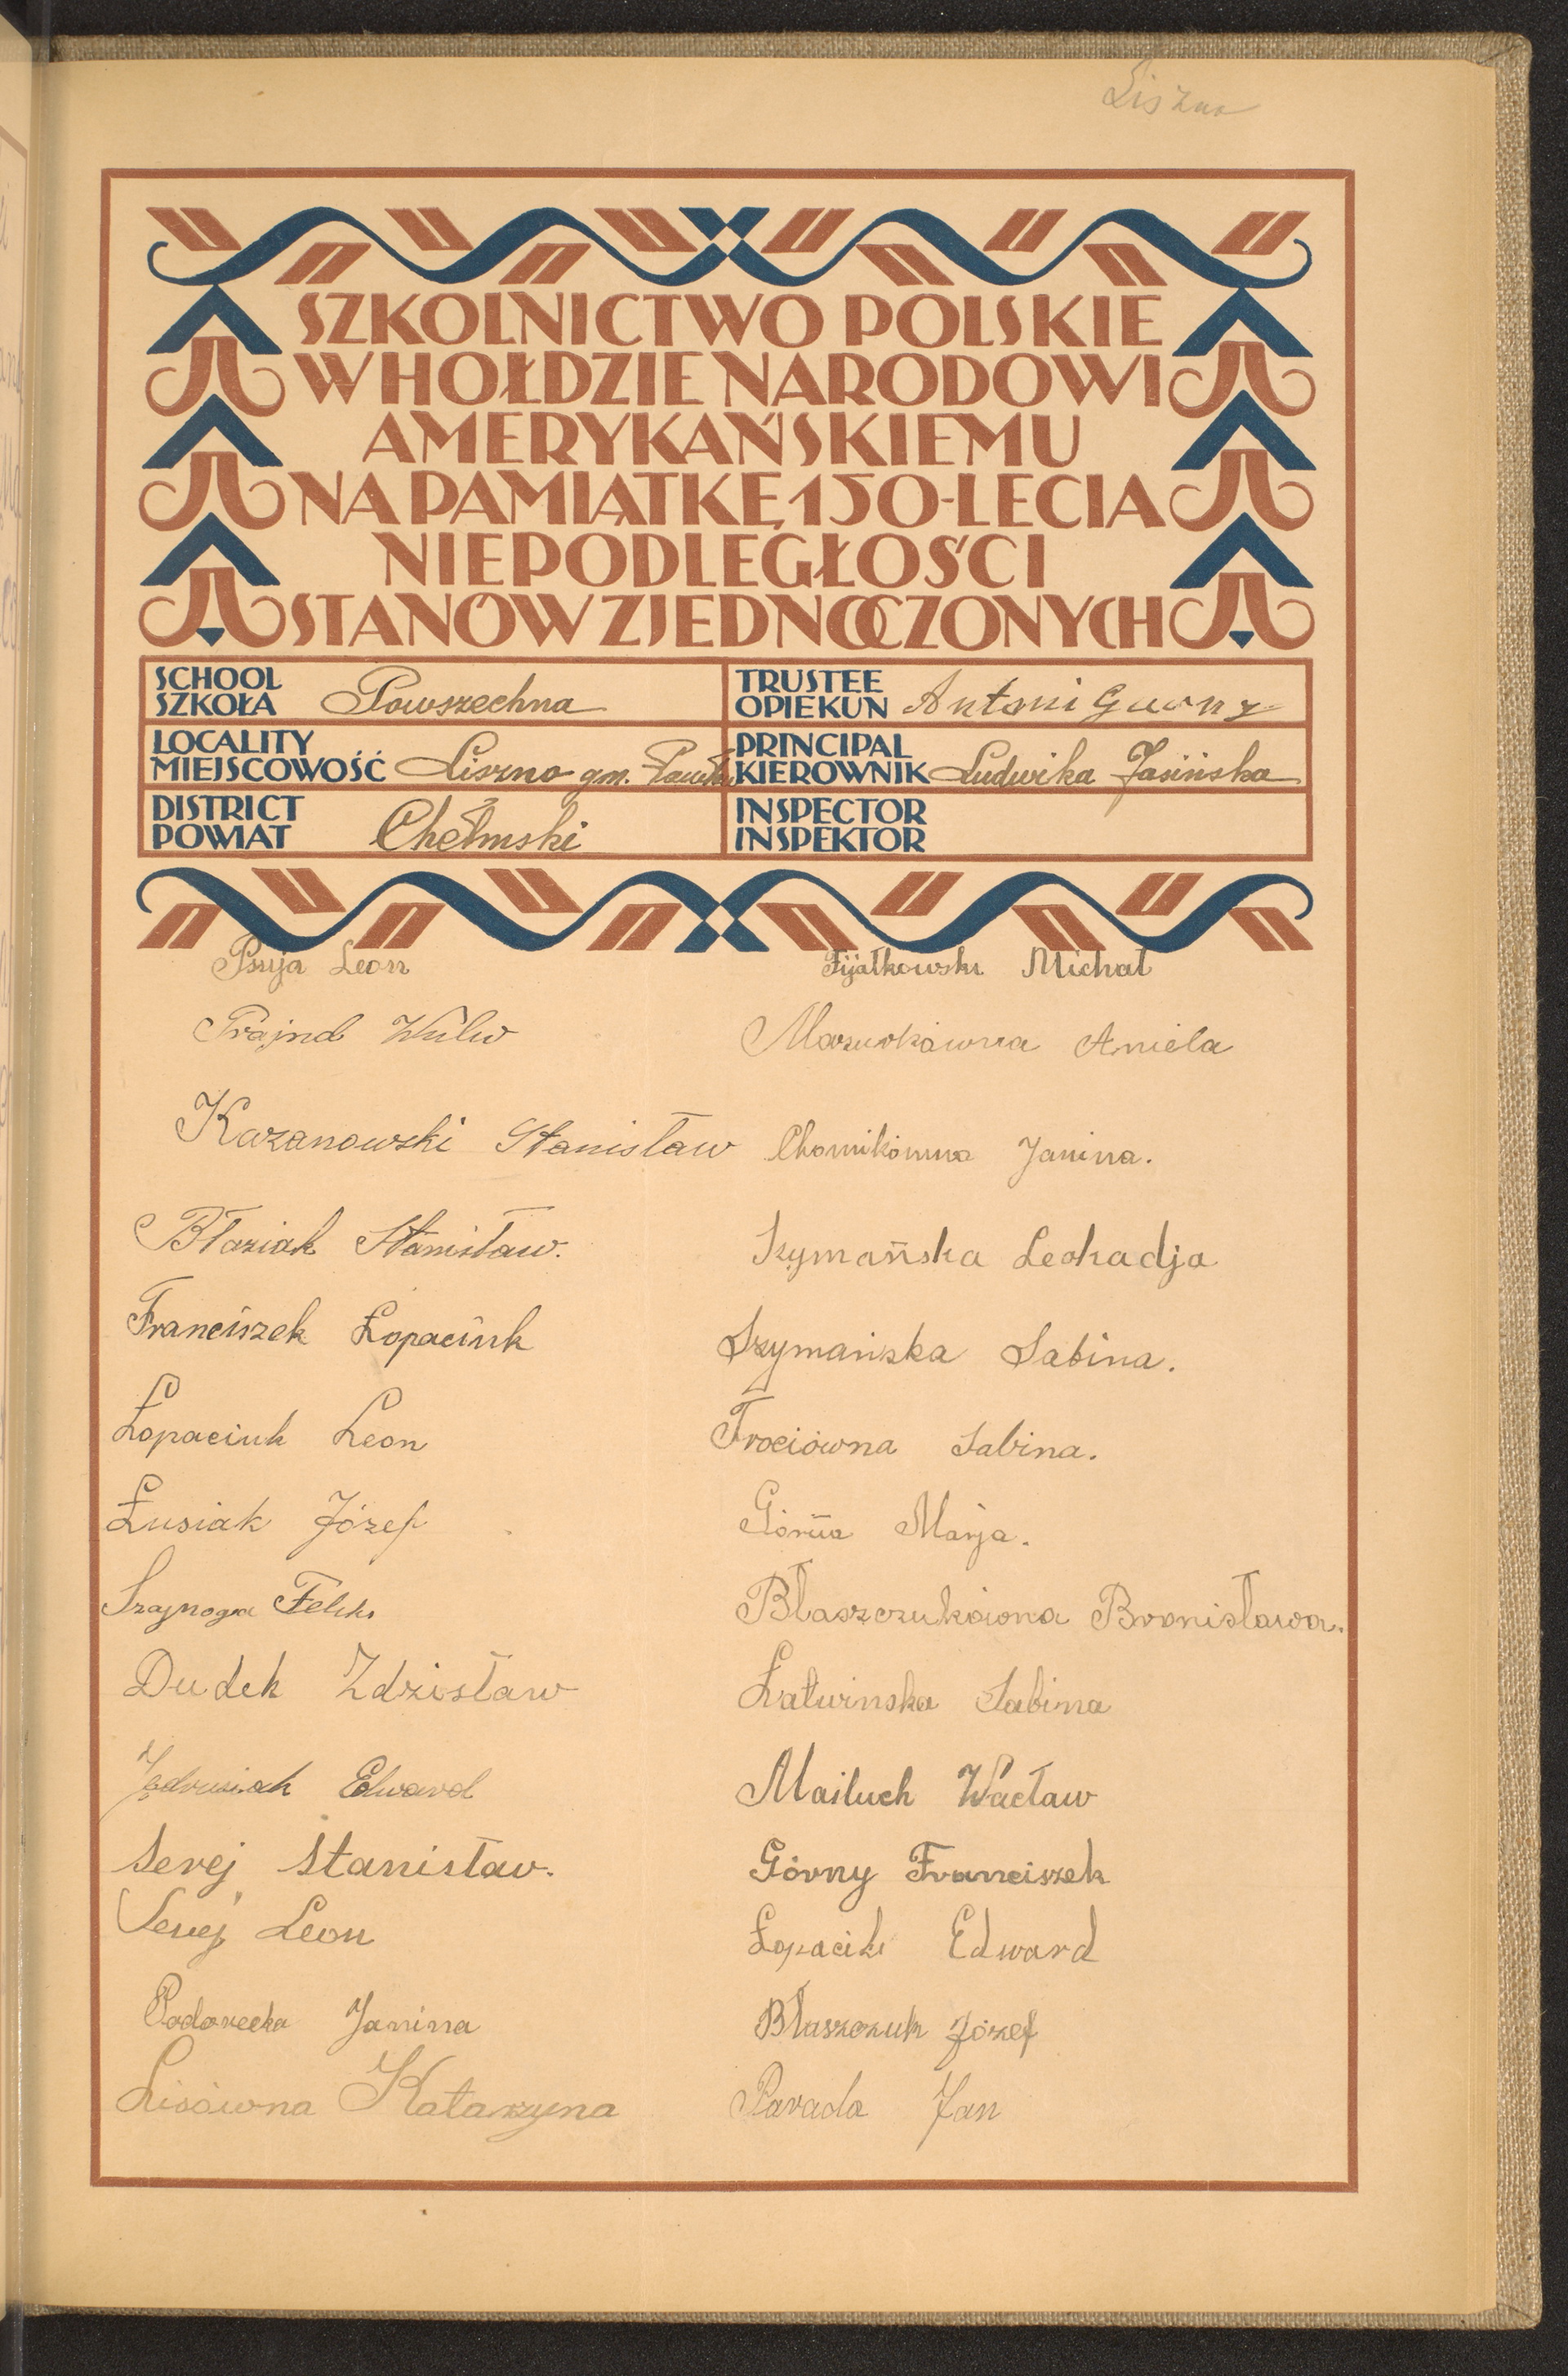 Liszno
SZKOLNICTWO POLSKIE
W HOŁDZIE NARODOWI
AMERYKAŃSKIEMU
NA PAMIĄTKĘ 150-LECIA
NIEPODLEGŁOŚCI
STANÓW ZJEDNOCZONYCH
SCHOOL
SZKOŁA Powszechna
TRUSTEE
OPIEKUN Antoni
LOCALITY
MIEJSCOWOŚĆ Liszno gm.
PRINCIPAL
KIEROWNIK Ludwika Jasińska
DISTRICT
POWIAT Chełmski
INSPECTOR
INSPEKTOR
Psuja Leon
Prajnd Wulw
Kazanowski Stanisław
Błaziak Stanisław.
Franciszek Łopaciuk
Łopaciuk Leon
Łusiak Józef
Szajnoga Feliks
Dudek Zdzisław
Jędrusiak Edward
Serej Stanisław.
Serej Leon
Podorecka Janina
Lisówna Katarzyna
Fijałkowski Michał
Mazurkówna Aniela
Chomikówna Janina.
Szymańska Leokadja
Szymańska Sabina.
Trociówna Sabina.
Górna Marja.
Błaszczukówna Bronisława.
Łatwinska Sabina
Mailuch Wacław
Górny Franciszek
Edward
Błaszczuk Józef
Parada Jan